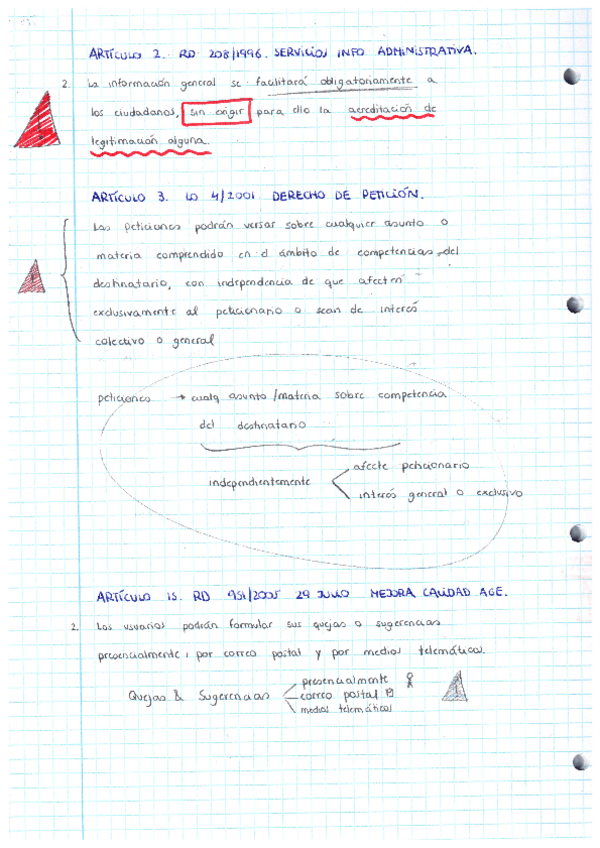 ARTÍCULO 2. RD 208/1996. SERVICIOS INFO ADMINISTRATIVA.
2. La información general se facilitará obligatoriamente a
los ciudadanos, sin exigir para ello la acreditación de
legitimación alguna.
ARTÍCULO 3. LO 4/2001 DERECHO DE PETICIÓN.
Las peticiones podrán versar sobre cualquier asunto o
materia comprendido en el ámbito de competencias del
destinatario, con independencia de que afecten
exclusivamente al peticionario o sean de interés
colectivo o general
peticiones → cualq asunto/materia sobre competencia
del destinatario
independientemente
afecte peticionario
interés general o exclusivo
ARTÍCULO 15. RD 951/2005 29 JULIO MEJORA CALIDAD AGE.
2. Los usuarios podrán formular sus quejas o sugerencias
presencialmente, por correo postal y por medios telemáticos.
presencialmente
Quejas & Sugerencias correo postal
medios telemáticos